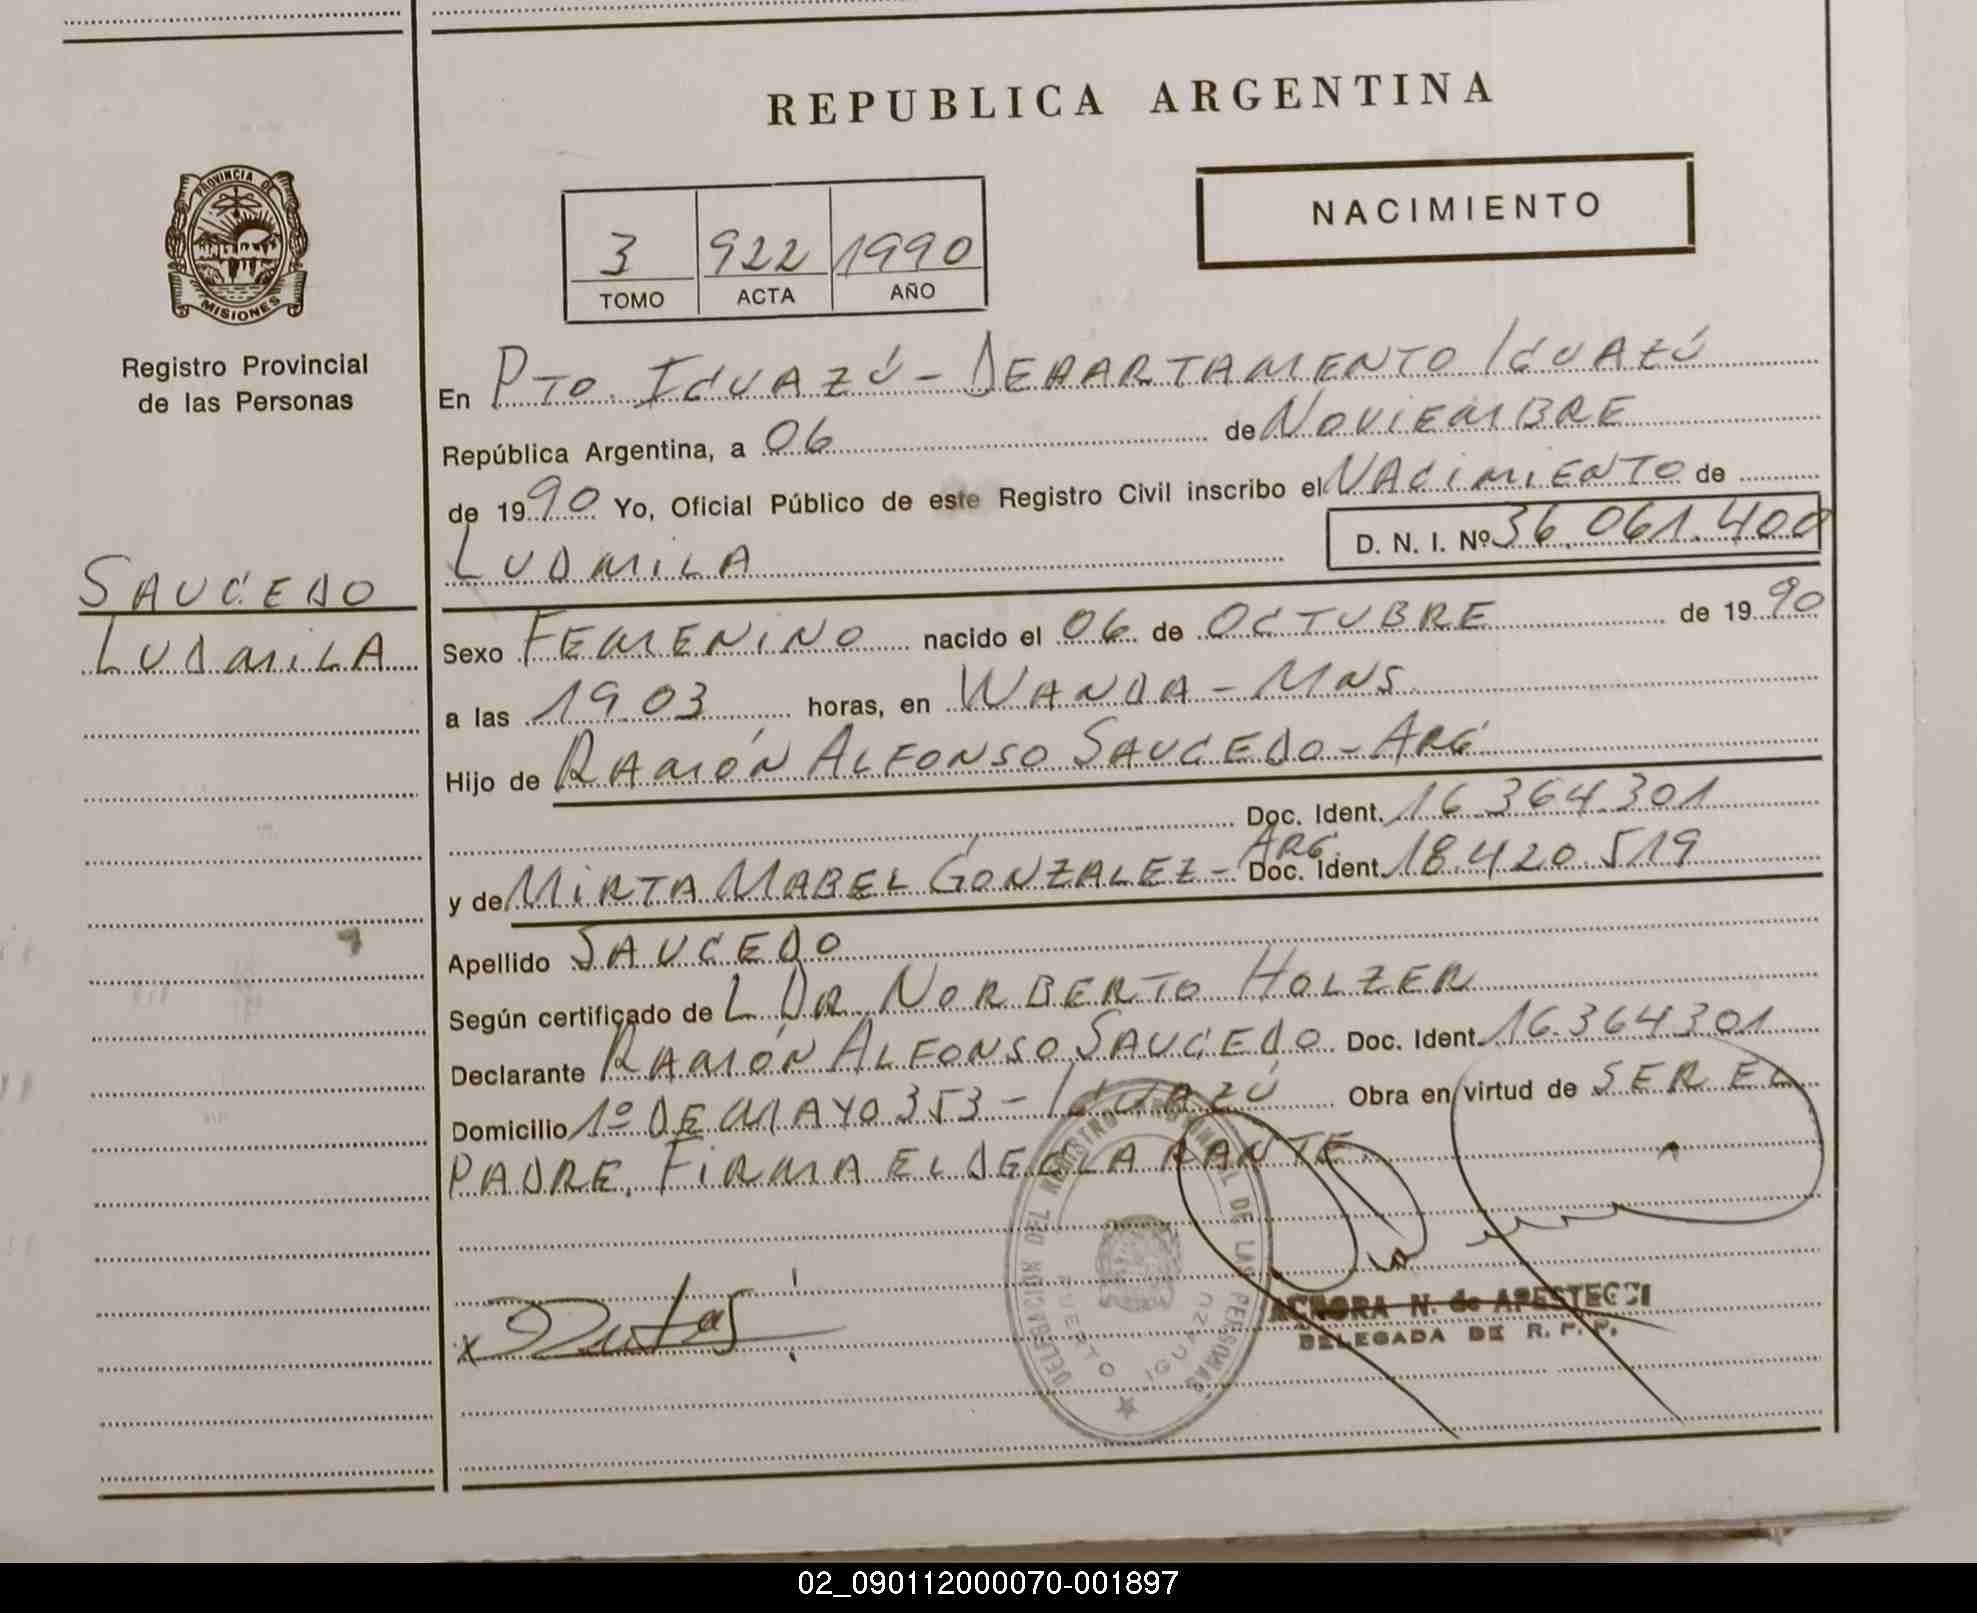 REPUBLICA ARGENTINA
PROVINCIA DE
MISIONES
Registro Provincial
de las Personas
NACIMIENTO
3 922 1990
TOMO ACTA AÑO
En PTO. IGUAZÚ - DEPARTAMENTO IGUAZÚ
República Argentina, a 06 de NOVIEMBRE
de 1990 Yo, Oficial Público de este Registro Civil inscribo el NACIMIENTO de
LUDMILA D. N. I. Nº 36.061.400
SAUCEDO
LUDMILA
Sexo FEMENINO nacido el 06 de OCTUBRE de 1990
a las 19.03 horas, en WANDA - MNS.
Hijo de RAMÓN ALFONSO SAUCEDO - ARG
Doc. Ident. 16.364.301
y de MIRTA MABEL GONZALEZ - ARG. Doc. Ident. 18.420.519
Apellido SAUCEDO
Según certificado de L DR. NORBERTO HOLZER
Declarante RAMÓN ALFONSO SAUCEDO Doc. Ident. 16.364301
Domicilio 1º DE MAYO 353 - IGUAZÚ Obra en virtud de SER EL
PADRE. FIRMA EL DECLARANTE.
DELEGACION DEL REGISTRO PROVINCIAL DE LAS PERSONAS
PUERTO IGUAZU
N. de APESTEGUI
DELEGADA DE R. P. P.
x
02_090112000070-001897